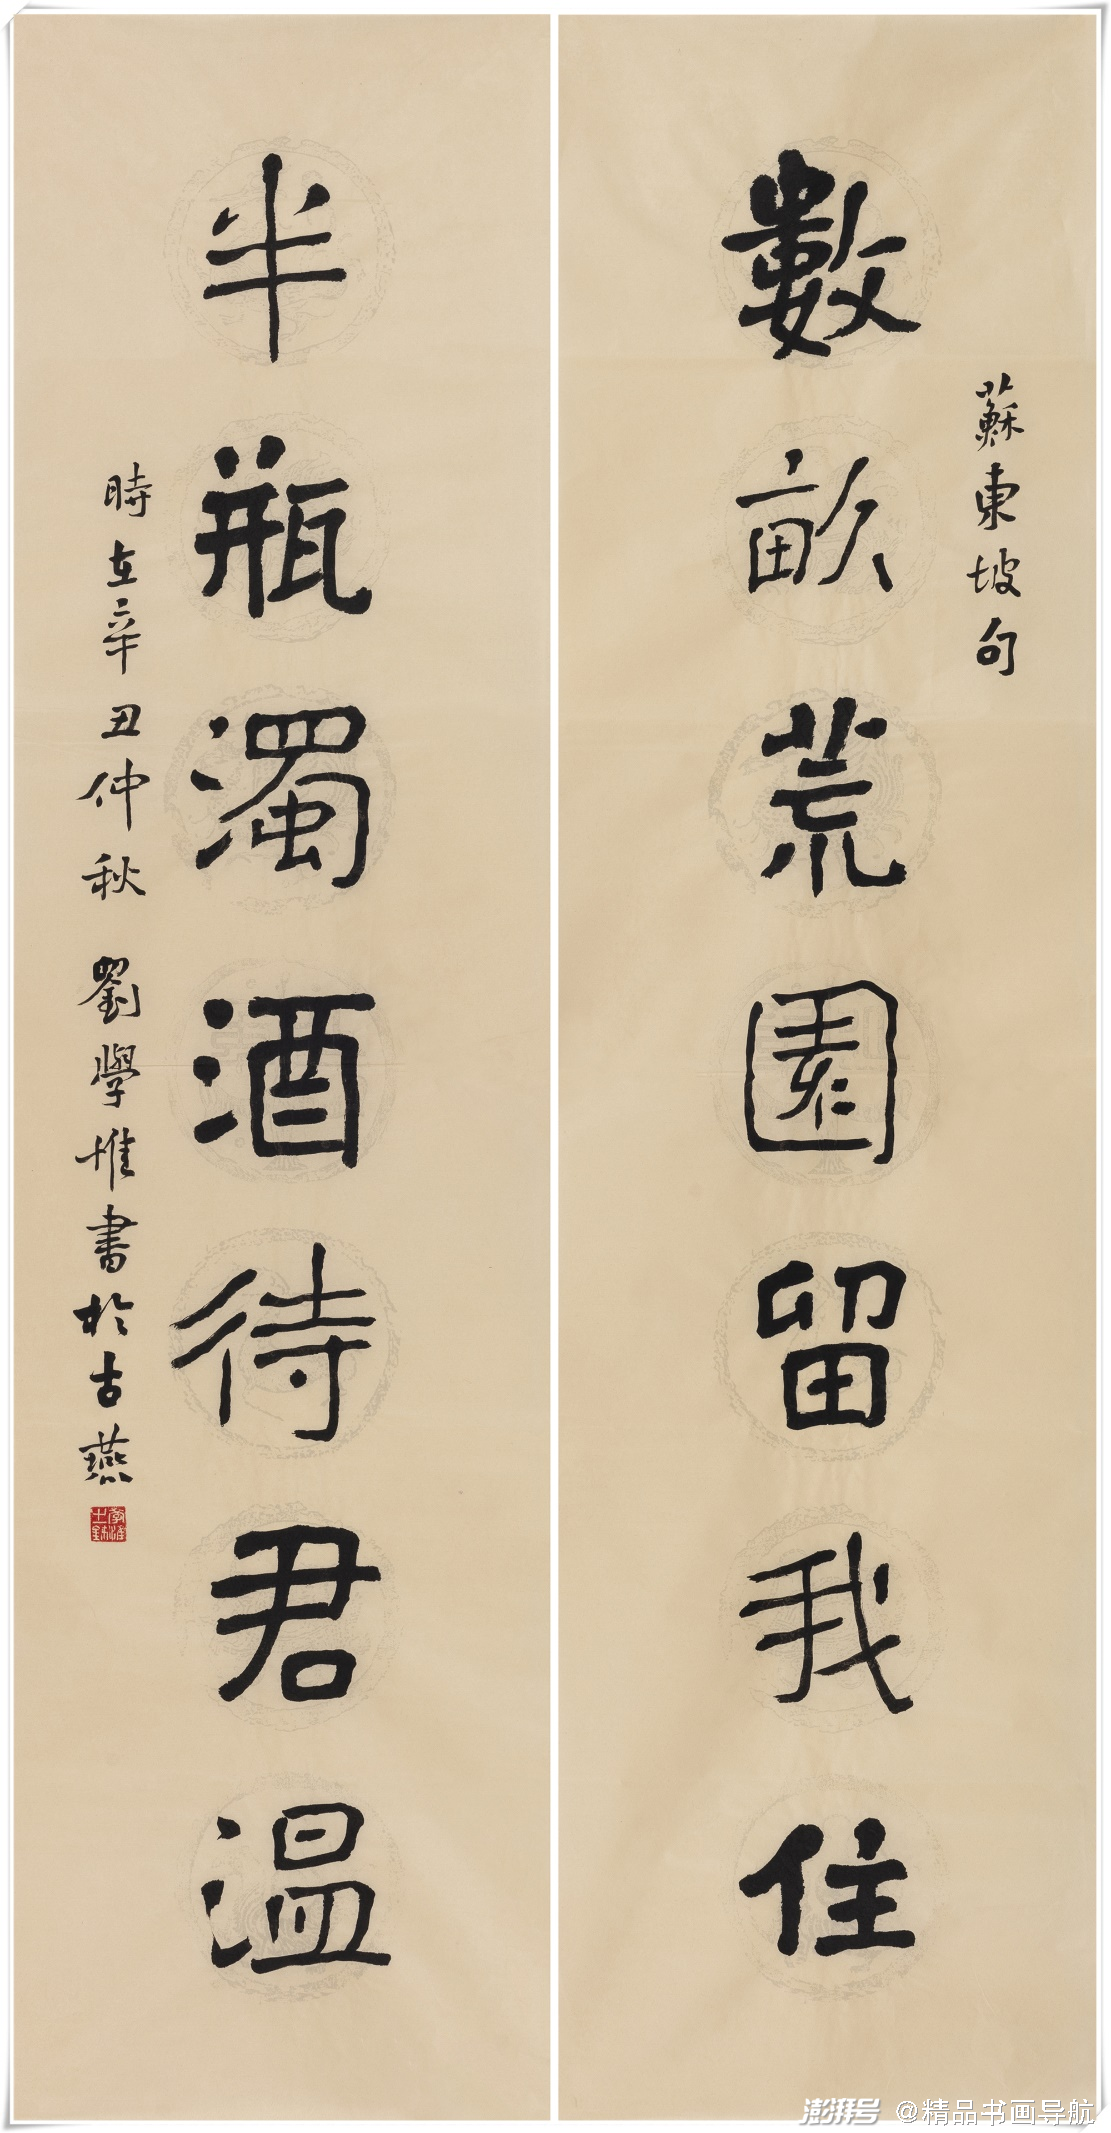 蘇東坡句
數畝荒園留我住
半瓶濁酒待君温
時在辛丑仲秋 劉學惟書於古燕
澎湃号 @精品书画导航